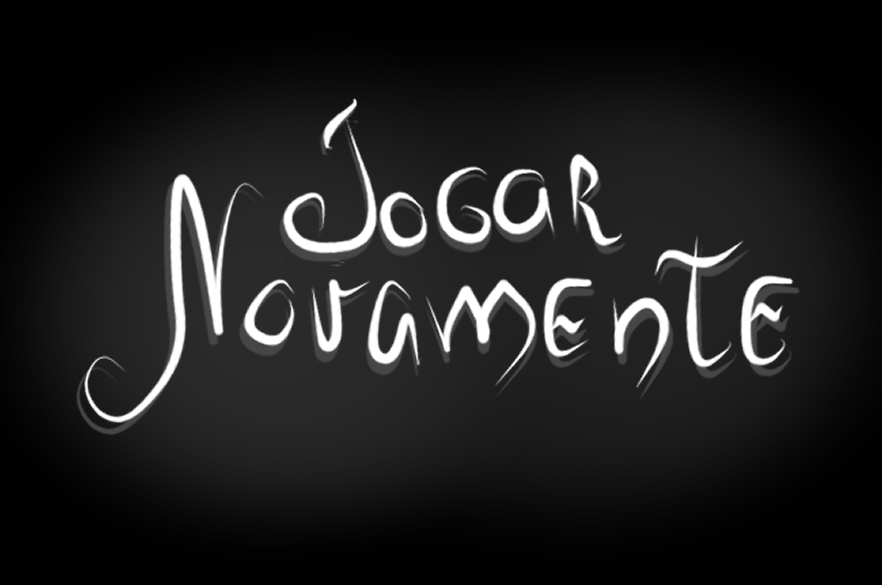 Jogar
Novamente